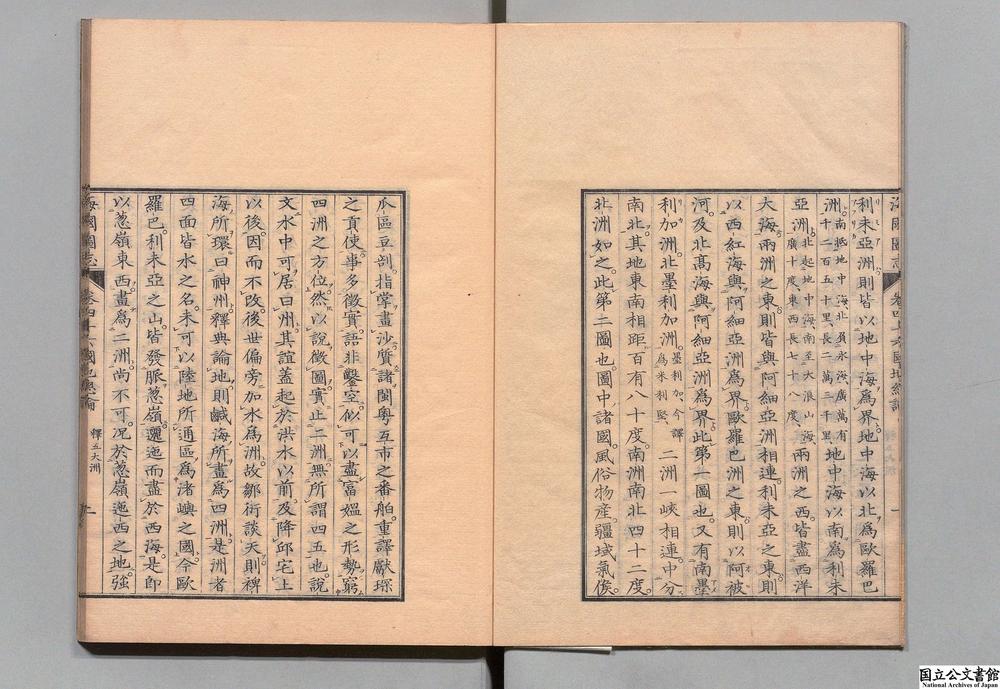 海國圖志
利未亞洲。則皆以地中海爲界。地中海以北爲歐羅巴
洲。南抵地中海北負氷海廣萬有千二百五十里長二萬三千里地中海以南爲利未
亞洲北起地中海南至大浪山海廣十度東西長七十八度兩洲之西。皆盡西洋
大海。兩洲之東。則皆與阿細亞洲相連。利未亞之東。則
以西紅海與阿細亞洲爲界。歐羅巴洲之東。則以阿被
河。及北髙海與阿細亞洲爲界。此第一圖也。又有南墨
利加洲。北墨利加洲。墨利加今譯爲米利堅二洲一峽相連。中分
南北。其地東南相距百有八十度。南洲南北四十二度。
北洲如之。此第二圖也。圖中諸國。風俗物産疆域氣候。
瓜區豆剖。指掌畫沙。質諸閩粤互市之番舶。重譯獻琛
之貢使。事多徵實。語非鑿空。似可以盡富媼之形勢。窮
四洲之方位。然以說徵圖。實止二洲。無所謂四五也。說
文水中可居曰州。其誼蓋起於洪水以前。及降邱宅土
以後。因而不改。後世偏旁加水爲洲。故鄒衍談天。則裨
海所環。曰神州。釋典論地。則鹹海所畫。爲四洲。是洲者
四面皆水之名。未可以陸地所通。區爲渚嶼之國。今歐
羅巴。利未亞之山。皆發脈葱嶺。邐迤而盡於西海。是卽
以葱嶺東西畫爲二洲。尚不可。况於葱嶺迤西之地。强
海國圖志
釋五大洲
国立公文書館
National Archives of Japan